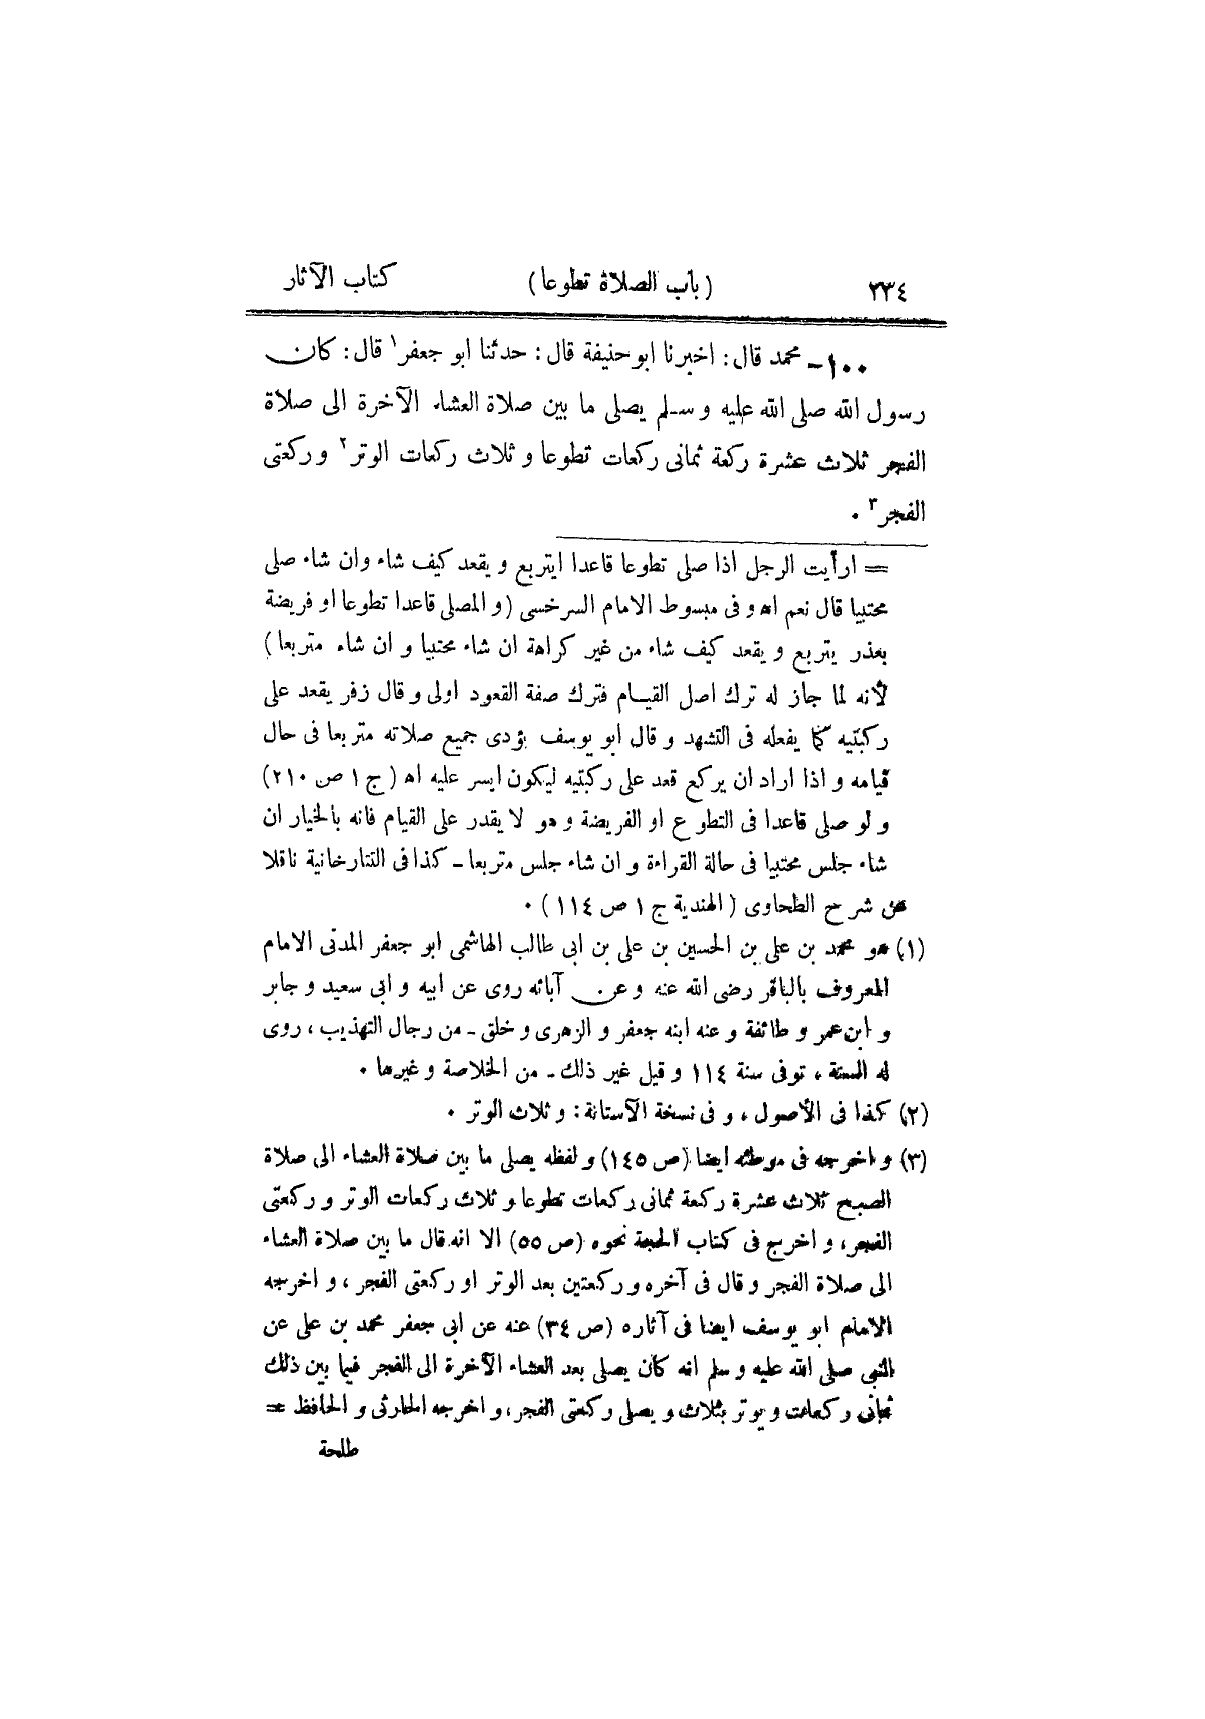 ٢٣٤ (باب الصلاة تطوعا) كتاب الآثار
١٠٠ - محمد قال: اخبرنا ابو حنيفة قال: حدثنا ابو جعفر١ قال: كان
رسول الله صلى الله عليه و سلم يصلى ما بين صلاة العشاء الآخرة الى صلاة
الفجر ثلاث عشرة ركعة ثمانى ركعات تطوعا و ثلاث ركعات الوتر٢ و ركعتى
الفجر٣ .
= ارأيت الرجل اذا صلى تطوعا قاعدا ايتربع و يقعد كيف شاء وان شاء صلى
محتبيا قال نعم اه و فى مبسوط الامام السرخسى (و المصلى قاعدا تطوعا او فريضة
بعذر يتربع و يقعد كيف شاء من غير كراهة ان شاء محتبيا و ان شاء متربعا)
لأنه لما جاز له ترك اصل القيام فترك صفة القعود اولى و قال زفر يقعد على
ركبتيه كما يفعله فى التشهد و قال ابو يوسف يؤدى جميع صلاته متربعا فى حال
قيامه و اذا اراد ان يركع قعد على ركبتيه ليكون ايسر عليه اه (ج ١ ص ٢١٠)
و لو صلى قاعدا فى التطوع او الفريضة و هو لا يقدر على القيام فانه بالخيار ان
شاء جلس محتبيا فى حالة القراءة و ان شاء جلس متربعا ـ كذا فى التتارخانية ناقلا
عن شرح الطحاوى (الهندية ج ١ ص ١١٤) .
(١) هو محمد بن على بن الحسين بن على بن ابى طالب الهاشمى ابو جعفر المدنى الامام
المعروف بالباقر رضى الله عنه و عن آبائه روى عن ابيه و ابى سعيد و جابر
و ابن عمر و طائفة و عنه ابنه جعفر و الزهرى و خلق ـ من رجال التهذيب ، روى
له الستة ، توفى سنة ١١٤ و قيل غير ذلك ـ من الخلاصة و غيرها .
(٢) كذا فى الأصول ، و فى نسخة الآستانة : و ثلاث الوتر .
(٣) و اخرجه فى موطئه ايضا (ص ١٤٥) و لفظه يصلى ما بين صلاة العشاء الى صلاة
الصبح ثلاث عشرة ركعة ثمانى ركعات تطوعا و ثلاث ركعات الوتر و ركعتى
الفجر، و اخرج فى كتاب الحجة نحوه (ص ٥٥) الا انه قال ما بين صلاة العشاء
الى صلاة الفجر و قال فى آخره و ركعتين بعد الوتر او ركعتى الفجر ، و اخرجه
الامام ابو يوسف ايضا فى آثاره (ص ٣٤) عنه عن ابى جعفر محمد بن على عن
النبى صلى الله عليه و سلم انه كان يصلى بعد العشاء الآخرة الى الفجر فيما بين ذلك
ثمانى ركعات و يوتر بثلاث و يصلى ركعتى الفجر، و اخرجه الحارثى و الحافظ =
طلحة